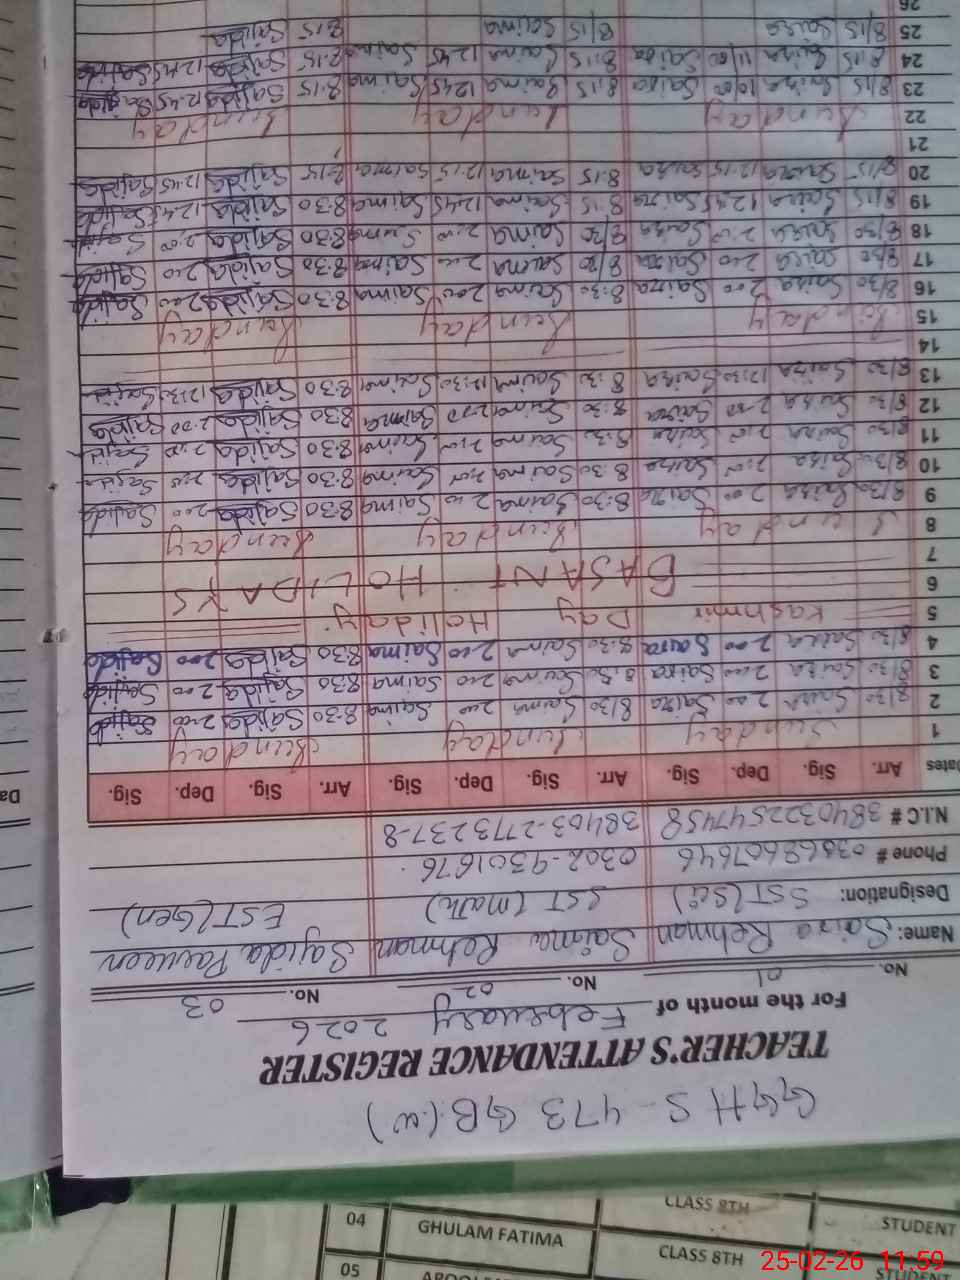 GGHS-473 GB.(w)
TEACHER'S ATTENDANCE REGISTER
For the month of February 2026
No. 01 No. 02 No. 03
Name: Saira Rehman Saima Rehman Sajida Parveen
Designation: SST(Sc) SST (math) EST(Gen)
Phone # 03368607646 0302-9301676
N.I.C # 3840322547458 38403-2773237-8
Dates Arr. Sig. Dep. Sig. Arr. Sig. Dep. Sig. Arr. Sig. Dep. Sig.
1 Sunday Sunday Sunday
2 8/30 Saira 2:00 Saira 8/30 Saima 2:00 Saima 8:30 Sajida 2:00 Sajida
3 8/30 Saira 2:00 Saira 8:30 Saima 2:00 Saima 8:30 Sajida 2:00 Sajida
4 8/30 Saira 2:00 Saira 8:30 Saima 2:00 Saima 8:30 Sajida 2:00 Sajida
5 Kashmir Day Holiday
6 BASANT HOLIDAYS
7
8 Sunday Sunday Sunday
9 8/30 Saira 2:00 Saira 8:30 Saima 2:00 Saima 8:30 Sajida 2:00 Sajida
10 8/30 Saira 2:00 Saira 8:30 Saima 2:00 Saima 8:30 Sajida 2:00 Sajida
11 8/30 Saira 2:00 Saira 8:30 Saima 2:00 Saima 8:30 Sajida 2:00 Sajida
12 8/30 Saira 2:00 Saira 8:30 Saima 2:00 Saima 8:30 Sajida 2:00 Sajida
13 8/30 Saira 12:30 Saira 8:30 Saima 12:30 Saima 8:30 Sajida 12:30 Sajida
14
15 Sunday Sunday Sunday
16 8/30 Saira 2:00 Saira 8:30 Saima 2:00 Saima 8:30 Sajida 2:00 Sajida
17 8/30 Saira 2:00 Saira 8/30 Saima 2:00 Saima 8:30 Sajida 2:00 Sajida
18 8/30 Saira 2:00 Saira 8/30 Saima 2:00 Saima 8:30 Sajida 2:00 Sajida
19 8/15 Saira 12:45 Saira 8:15 Saima 12:45 Saima 8:30 Sajida 12:45 Sajida
20 8/15 Saira 12:15 Saira 8:15 Saima 12:15 Saima 8:15 Sajida 12:45 Sajida
21
22 Sunday Sunday Sunday
23 8/15 Saira 10/00 Saira 8:15 Saima 12:45 Saima 8:15 Sajida 12:45 Sajida
24 8:15 Saira 11/00 Saira 8:15 Saima 12:45 Saima 8:15 Sajida 12:45 Sajida
25 8/15 Saira 8/15 Saima 8:15 Sajida
26
Da
04 GHULAM FATIMA CLASS 8TH STUDENT
05 CLASS 8TH STUDENT
25-02-26 11:59